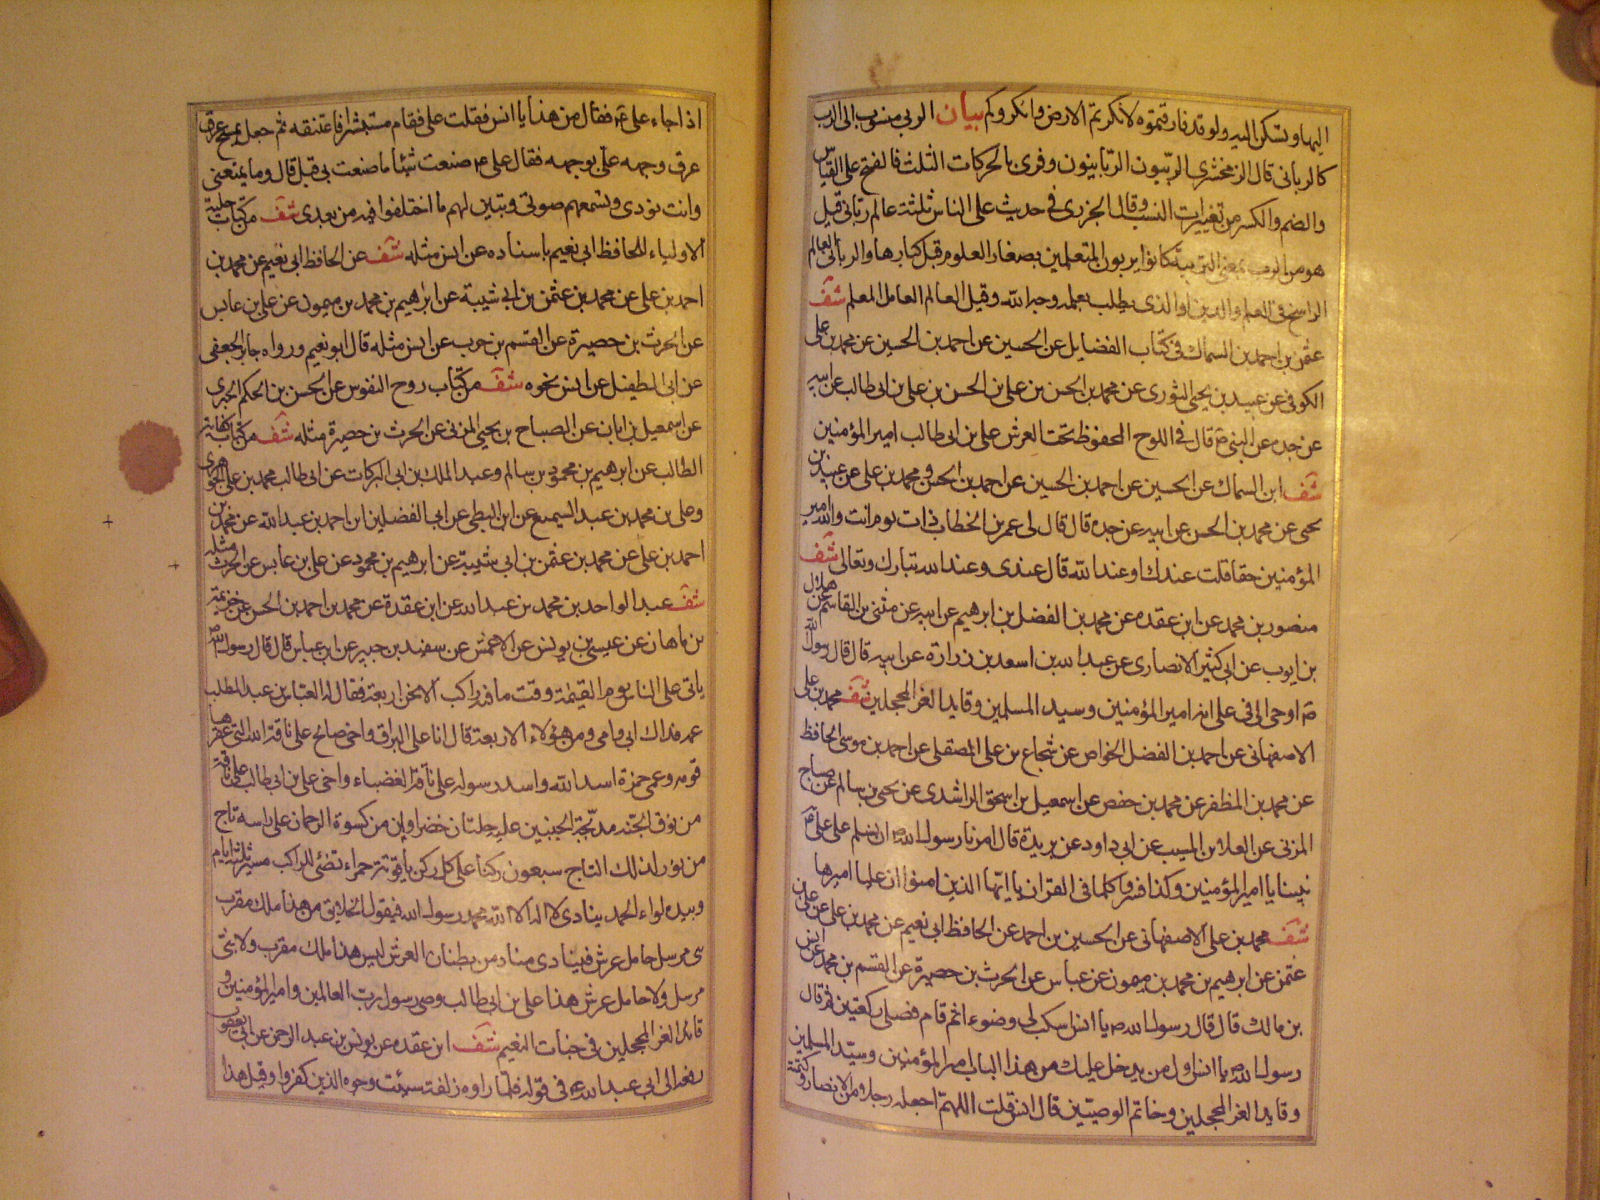 اليها وتسكن اليه ولو قد فارقتموه لانكرتم الارض وانكروكم بيان الربي منسوب الى الرب
كالرباني قال الزمخشري الربيون الربانيون وقرئ بالحركات الثلث فالفتح على القياس
والضم والكسر من تغييرات النسب وقال الجزري في حديث علي الناس ثلثة عالم رباني قيل
هو من الرب بمعنى التربية كانوا يربون المتعلمين بصغار العلوم قبل كبارها والرباني العالم
الراسخ في العلم والدين او الذي يطلب بعلمه وجه الله وقيل العالم العامل المعلم شف
عثمن بن احمد بن السماك في كتاب الفضايل عن الحسين عن احمد بن الحسين عن محمد بن علي
الكوفي عن عبيد بن يحيى الثوري عن محمد بن الحسن بن علي بن الحسن بن علي بن ابي طالب عن ابيه
عن جده عن النبي ص قال في اللوح المحفوظ تحت العرش علي بن ابي طالب امير المؤمنين
شف ابن السماك عن الحسين عن احمد بن الحسين عن احمد بن الحسن ومحمد بن علي عن عبيد بن
يحيى عن محمد بن الحسن عن ابيه عن جده قال قال لي عمر بن الخطاب ذات يوم انت والله امير
المؤمنين حقا قلت عندك او عند الله قال عندي وعند الله تبارك وتعالى شف
منصور بن محمد عن ابن عقده عن محمد بن الفضل بن ابرهيم عن ابيه عن مثنى بن القاسم عن هلال
بن ايوب عن ابي كثير الانصاري عن عبد الله بن اسعد بن زرارة عن ابيه قال قال رسول الله
ص اوحي الي في علي انه امير المؤمنين وسيد المسلمين وقايد الغر المحجلين شف محمد بن علي
الاصفهاني عن احمد بن الفضل الخواص عن شجاع بن علي المصقلي عن احمد بن موسى الحافظ
عن محمد بن المظفر عن محمد بن حفص عن اسمعيل بن اسحق الراشدي عن يحيى بن سالم عن صباح
المزني عن العلا بن المسيب عن ابي داود عن بريدة قال امرنا رسول الله ص ان نسلم على علي ع
بيننا يا امير المؤمنين وكذا فسروا كلما في القران يا ايها الذين امنوا ان عليا اميرها
شف محمد بن علي الاصفهاني عن الحسين بن احمد عن الحافظ ابي نعيم عن محمد بن علي عن علي بن
عثمن عن ابرهيم بن محمد بن ميمون عن عباس عن الحرث بن حصيرة عن القسم بن محمد عن انس
بن مالك قال قال رسول الله ص يا انس اسكب لي وضوءا ثم قام فصلى ركعتين ثم قال
رسول الله ص يا انس اول من يدخل عليك من هذا الباب امير المؤمنين وسيد المسلمين
وقايد الغر المحجلين وخاتم الوصيين قال انس قلت اللهم اجعله رجلا من الانصار وكتمته
اذا جاء علي ع فقال من هذا يا انس فقلت علي فقام مستبشرا فاعتنقه ثم جعل يمسح عرق
عرق وجهه علي بوجهه فقال علي ع صنعت شيئا ما صنعت بي قبل قال وما يمنعني
وانت تؤدي وتسمعهم صوتي وتبين لهم ما اختلفوا فيه من بعدي شف من كتاب حلية
الاولياء للحافظ ابي نعيم باسناده عن انس مثله شف عن الحافظ ابي نعيم عن محمد بن
احمد بن علي عن محمد بن عثمن بن ابي شيبة عن ابرهيم بن محمد بن ميمون عن علي بن عابس
عن الحرث بن حصيرة عن القسم بن حرب عن انس مثله قال ابو نعيم ورواه جابر الجعفي
عن ابي الطفيل عن انس نحوه شف من كتاب روح النفوس عن الحسن بن الحكم الحبري
عن اسمعيل بن ابان عن الصباح بن يحيى المزني عن الحرث بن حصيرة مثله شف من كتاب كفاية
الطالب عن ابرهيم بن محمود بن سالم وعبد الملك بن ابي البركات عن ابي طالب محمد بن علي الجوهري
وعلي بن محمد بن عبد السميع عن ابن البطي عن ابي الفضل بن احمد بن عبد الله عن محمد بن
احمد بن علي عن محمد بن عثمن بن ابي شيبة عن ابرهيم بن محمود عن علي بن عابس عن الحرث مثله
شف عبد الواحد بن محمد بن عبد الله عن ابن عقدة عن محمد بن احمد بن الحسن عن خزيمة
بن ماهان عن عيسى بن يونس عن الاعمش عن سعيد بن جبير عن ابن عباس قال قال رسول الله ص
ياتي على الناس يوم القيمة وقت ما فيه راكب الا نحن اربعة فقال له العباس بن عبد المطلب
عمه فداك ابي وامي ومن هؤلاء الاربعة قال انا على البراق واخي صالح على ناقة الله التي عقرها
قومه وعمي حمزة اسد الله واسد رسوله على ناقة الغضباء واخي علي بن ابي طالب على ناقة
من نوق الجنة مدبجة الجنبين عليه حلتان خضراوان من كسوة الرحمان على راسه تاج
من نور لذلك التاج سبعون ركنا على كل ركن ياقوتة حمراء تضئ للراكب مسيرة ثلثة ايام
وبيده لواء الحمد ينادي لا اله الا الله محمد رسول الله فيقول الخلايق من هذا ملك مقرب
نبي مرسل حامل عرش فينادي مناد من بطنان العرش ليس هذا ملك مقرب ولا نبي
مرسل ولا حامل عرش هذا علي بن ابي طالب وصي رسول رب العالمين وامير المؤمنين و
قائد الغر المحجلين في جنات النعيم شف ابن عقده عن يونس بن عبد الرحمن عن ابي يعقوب
رفعه الى ابي عبد الله ع في قوله فلما راوه زلفة سيئت وجوه الذين كفروا وقيل هذا